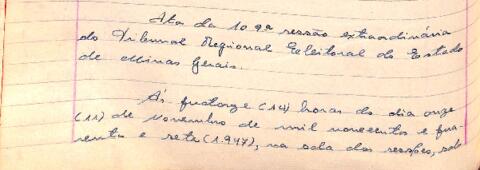 Ata da 10.ª sessão extraordinária
do Tribunal Regional Eleitoral do Estado
de Minas Gerais.
Ás quatorze (14) horas do dia onze
(11) de novembro de mil novecentos e qua-
renta e sete (1.947), na sala das sessões, sob